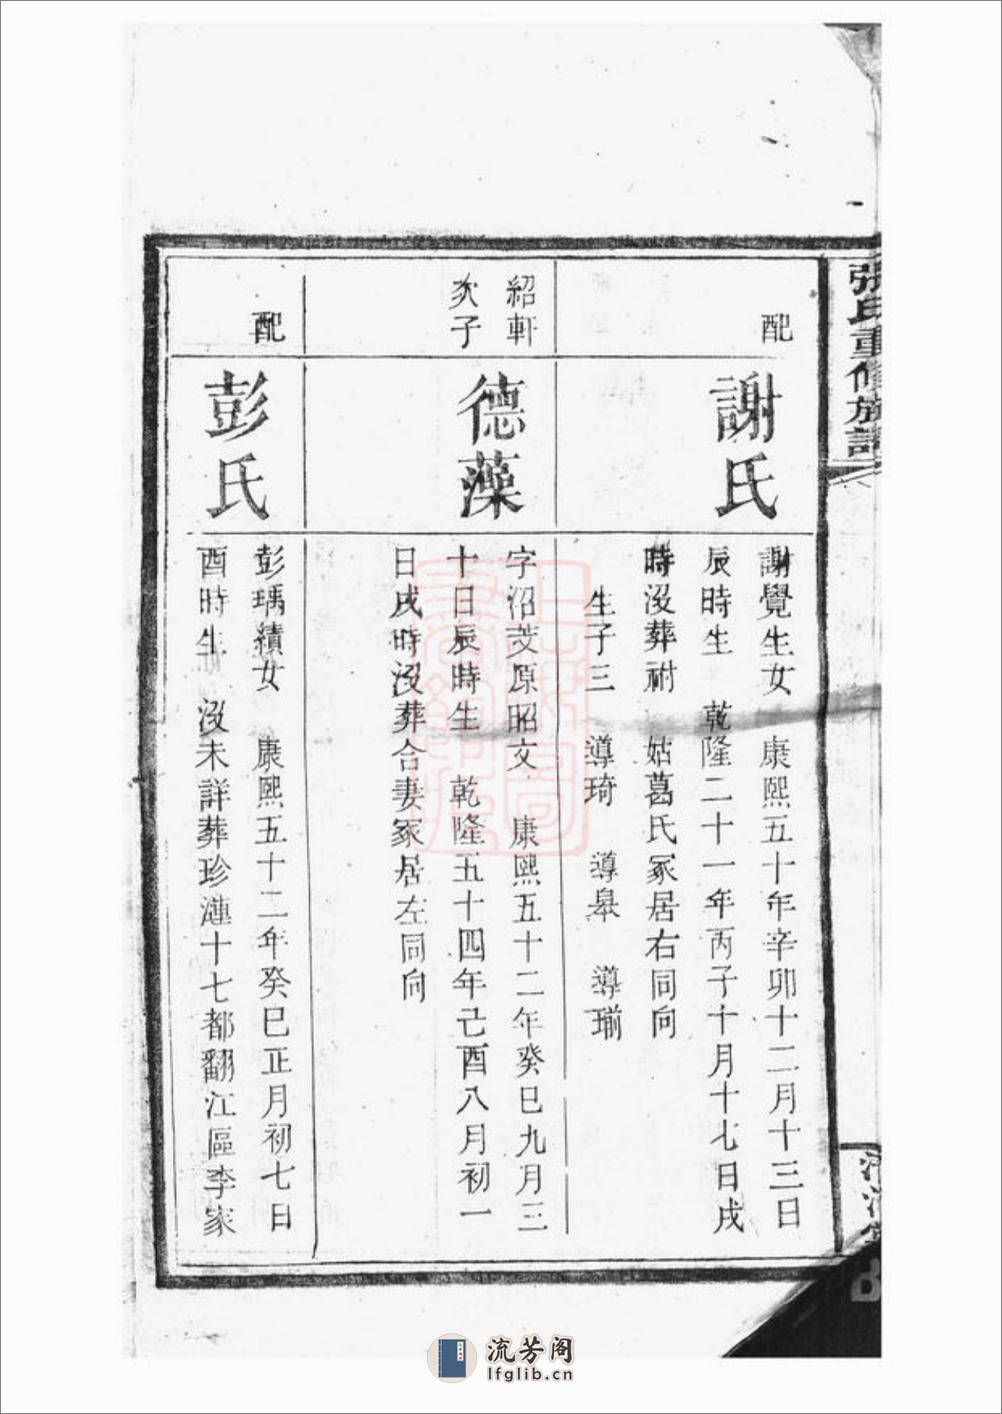 張氏重修族譜
配
謝氏
謝覺生女　康熙五十年辛卯十二月十三日
辰時生　乾隆二十一年丙子十月十七日戌
時沒葬祔　姑葛氏冢居右同向
生子三　導琦　導皋　導瑞
紹軒
次子
德藻
字沼芠原昭文　康熙五十二年癸巳九月三
十日辰時生　乾隆五十四年己酉八月初一
日戌時沒葬合妻冢居左同向
配
彭氏
彭瑀績女　康熙五十二年癸巳正月初七日
酉時生　沒未詳葬珍漣十七都翻江區李家
流芳阁
lfglib.cn